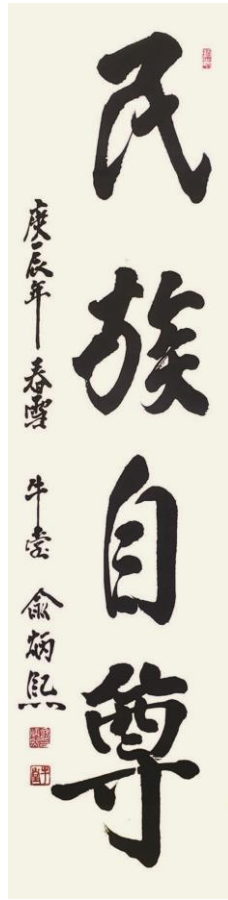 民族自尊
庚辰年 春雪 牛堂 俞炳熙